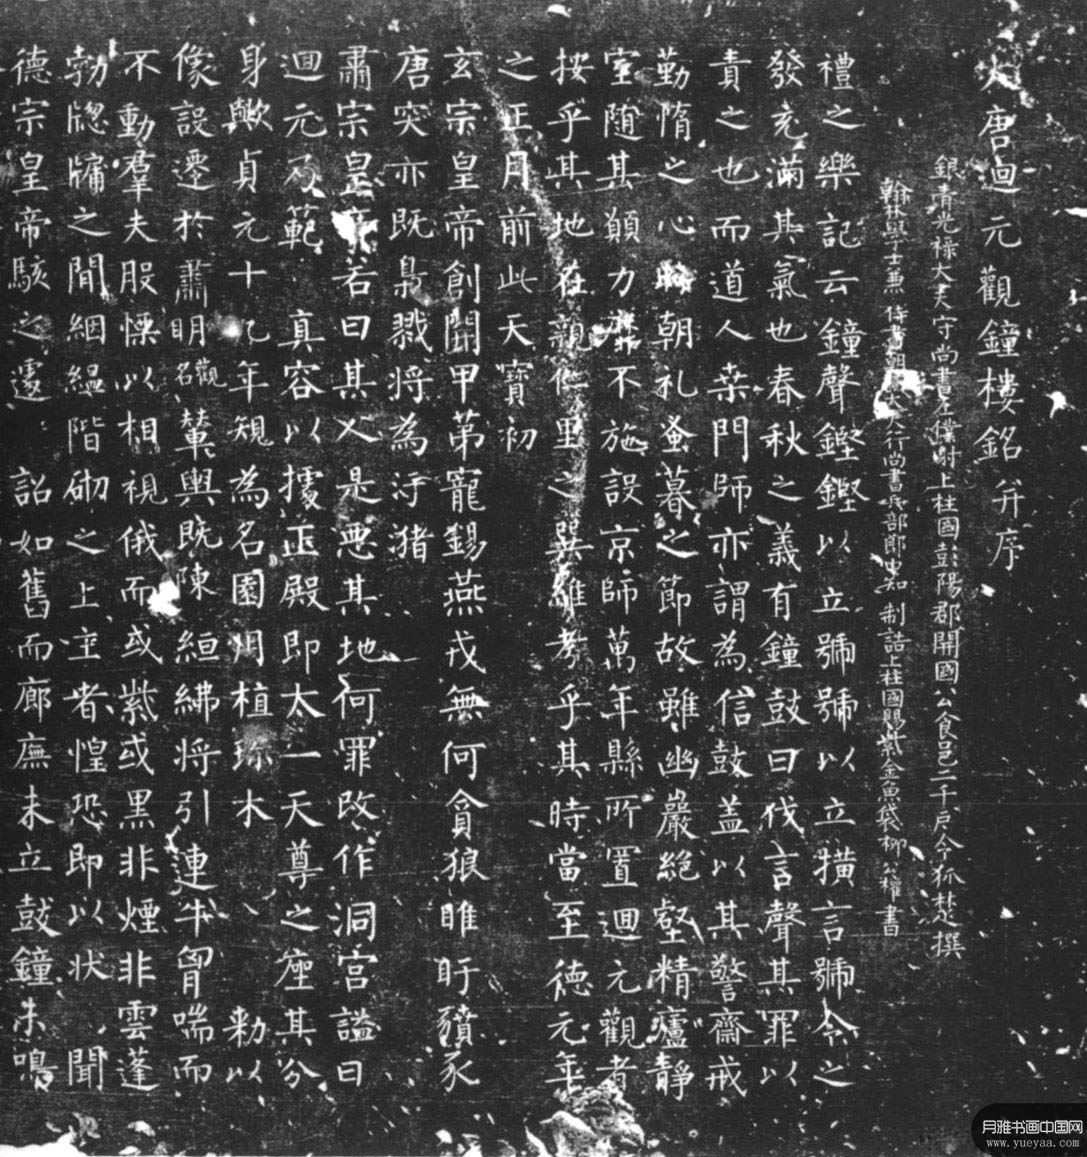 大唐迴元觀鐘樓銘并序
銀青光祿大夫守尚書左僕射上柱國彭陽郡開國公食邑二千戶令狐楚撰
翰林學士兼侍書朝大夫行尚書兵部郎中知制誥上柱國賜紫金魚袋柳公權書
禮之樂記云鐘聲鏗鏗以立號號以立撗言號令之
發充滿其氣也春秋之義有鐘鼓曰伐言聲其罪以
責之也而道人桒門師亦謂為信鼓盖以其警齋戒
勤惰之心時朝礼蚤暮之節故雖幽巖絕壑精廬靜
室隨其願力靡不施設京師萬年縣所置迴元觀者
按乎其地在親仁里之巽維考乎其時當至德元年
之正月前此天寶初
玄宗皇帝創開甲第寵錫燕戎無何貪狼睢盱豶豕
唐突亦既梟戮將為汙猪
肅宗皇帝若曰其人是惡其地何罪改作洞宮謚曰
迴元乃範真容以據正殿即太一天尊之座其分
身歟貞元十九年規為名園用植珎木勅以
像設遷於肅明觀名輦輿既陳絙紼將引連牛胷喘而
不動羣夫股慄以相視俄而或紫或黑非煙非雲蓬
勃牎牖之間絪縕階砌之上主者惶恐即以狀聞
德宗皇帝駭之遽詔如舊而廊廡未立鼓鐘未鳴
月雅书画中国网
www.yueyaa.com